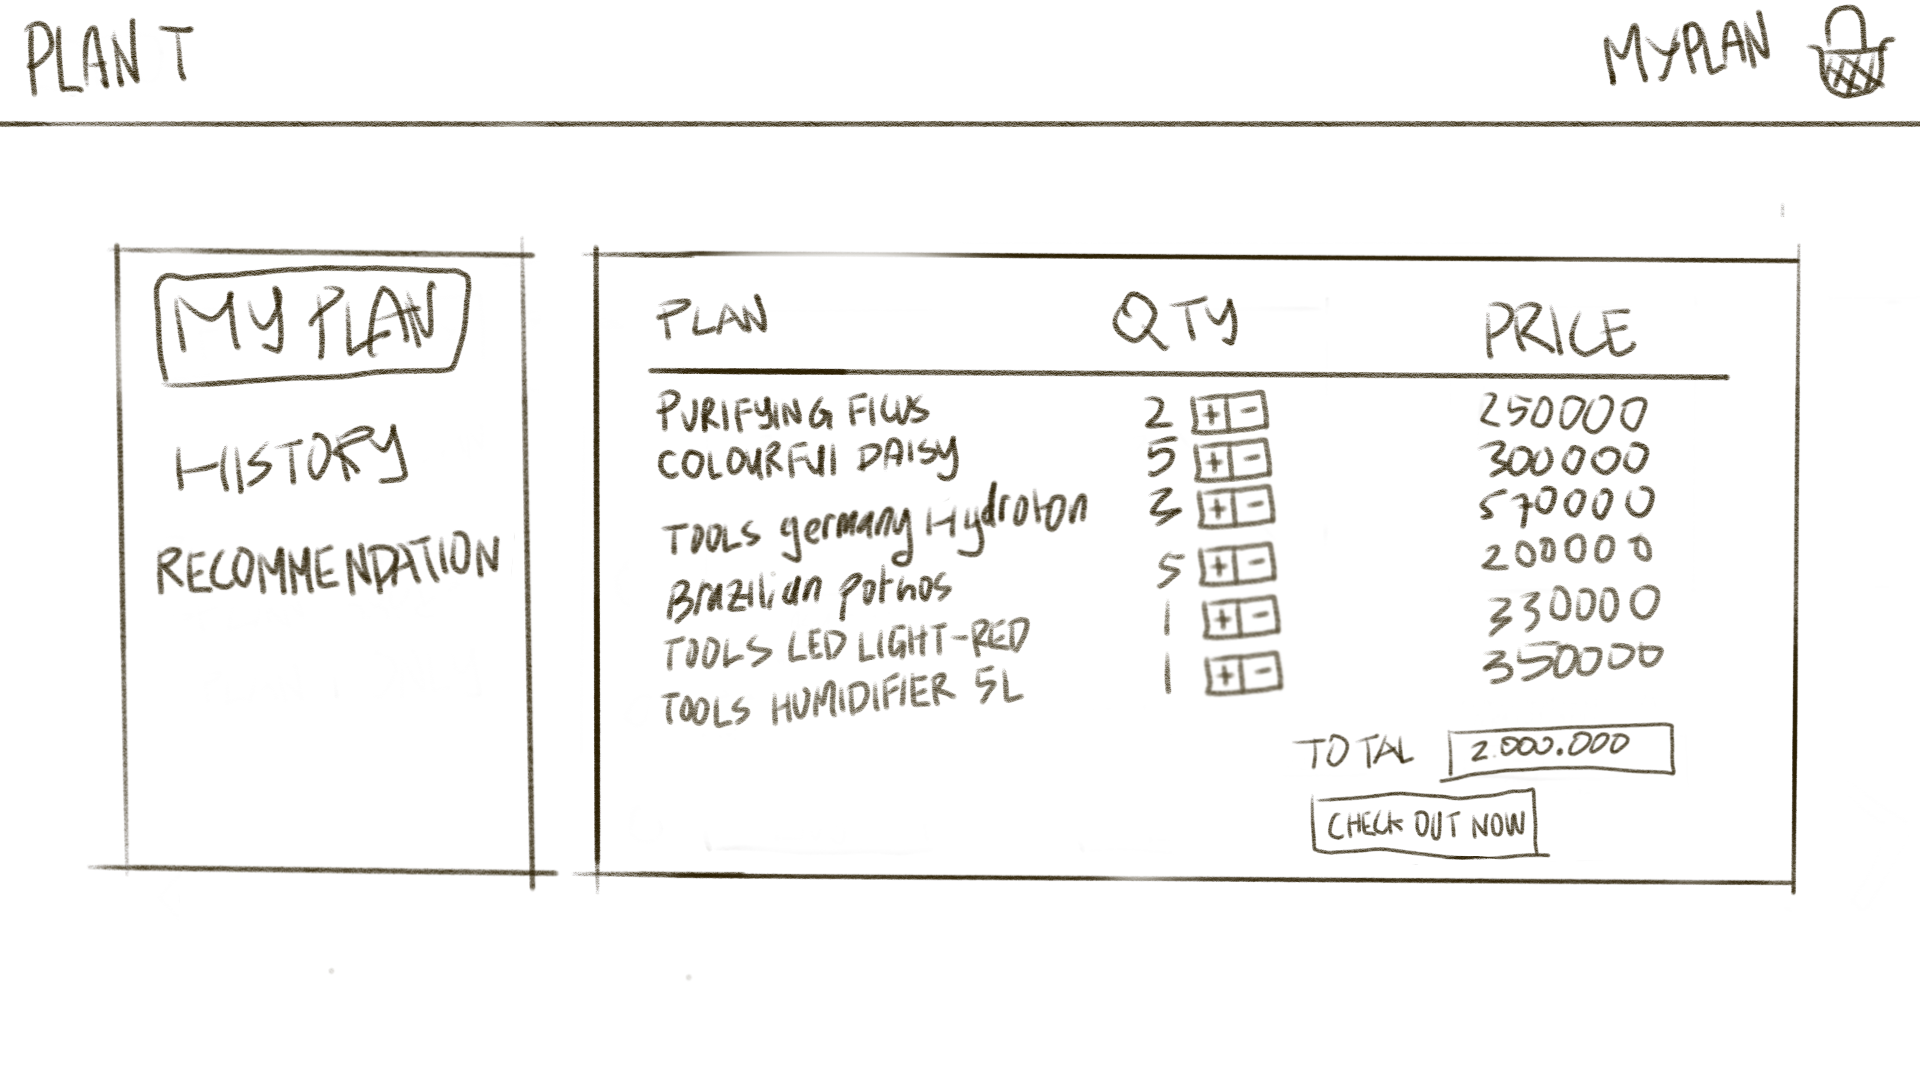 PLANT
MYPLAN
MY PLAN
HISTORY
RECOMMENDATION
PLAN QTY PRICE
PURIFYING FICUS 2 + - 250000
COLOURFUll DAISY 5 + - 300000
TOOLS germany Hydroton 3 + - 570000
Brazilian pothos 5 + - 200000
TOOLS LED LIGHT-RED 1 + - 330000
TOOLS HUMIDIFIER 5L 1 + - 350000
TOTAL 2.000.000
CHECK OUT NOW